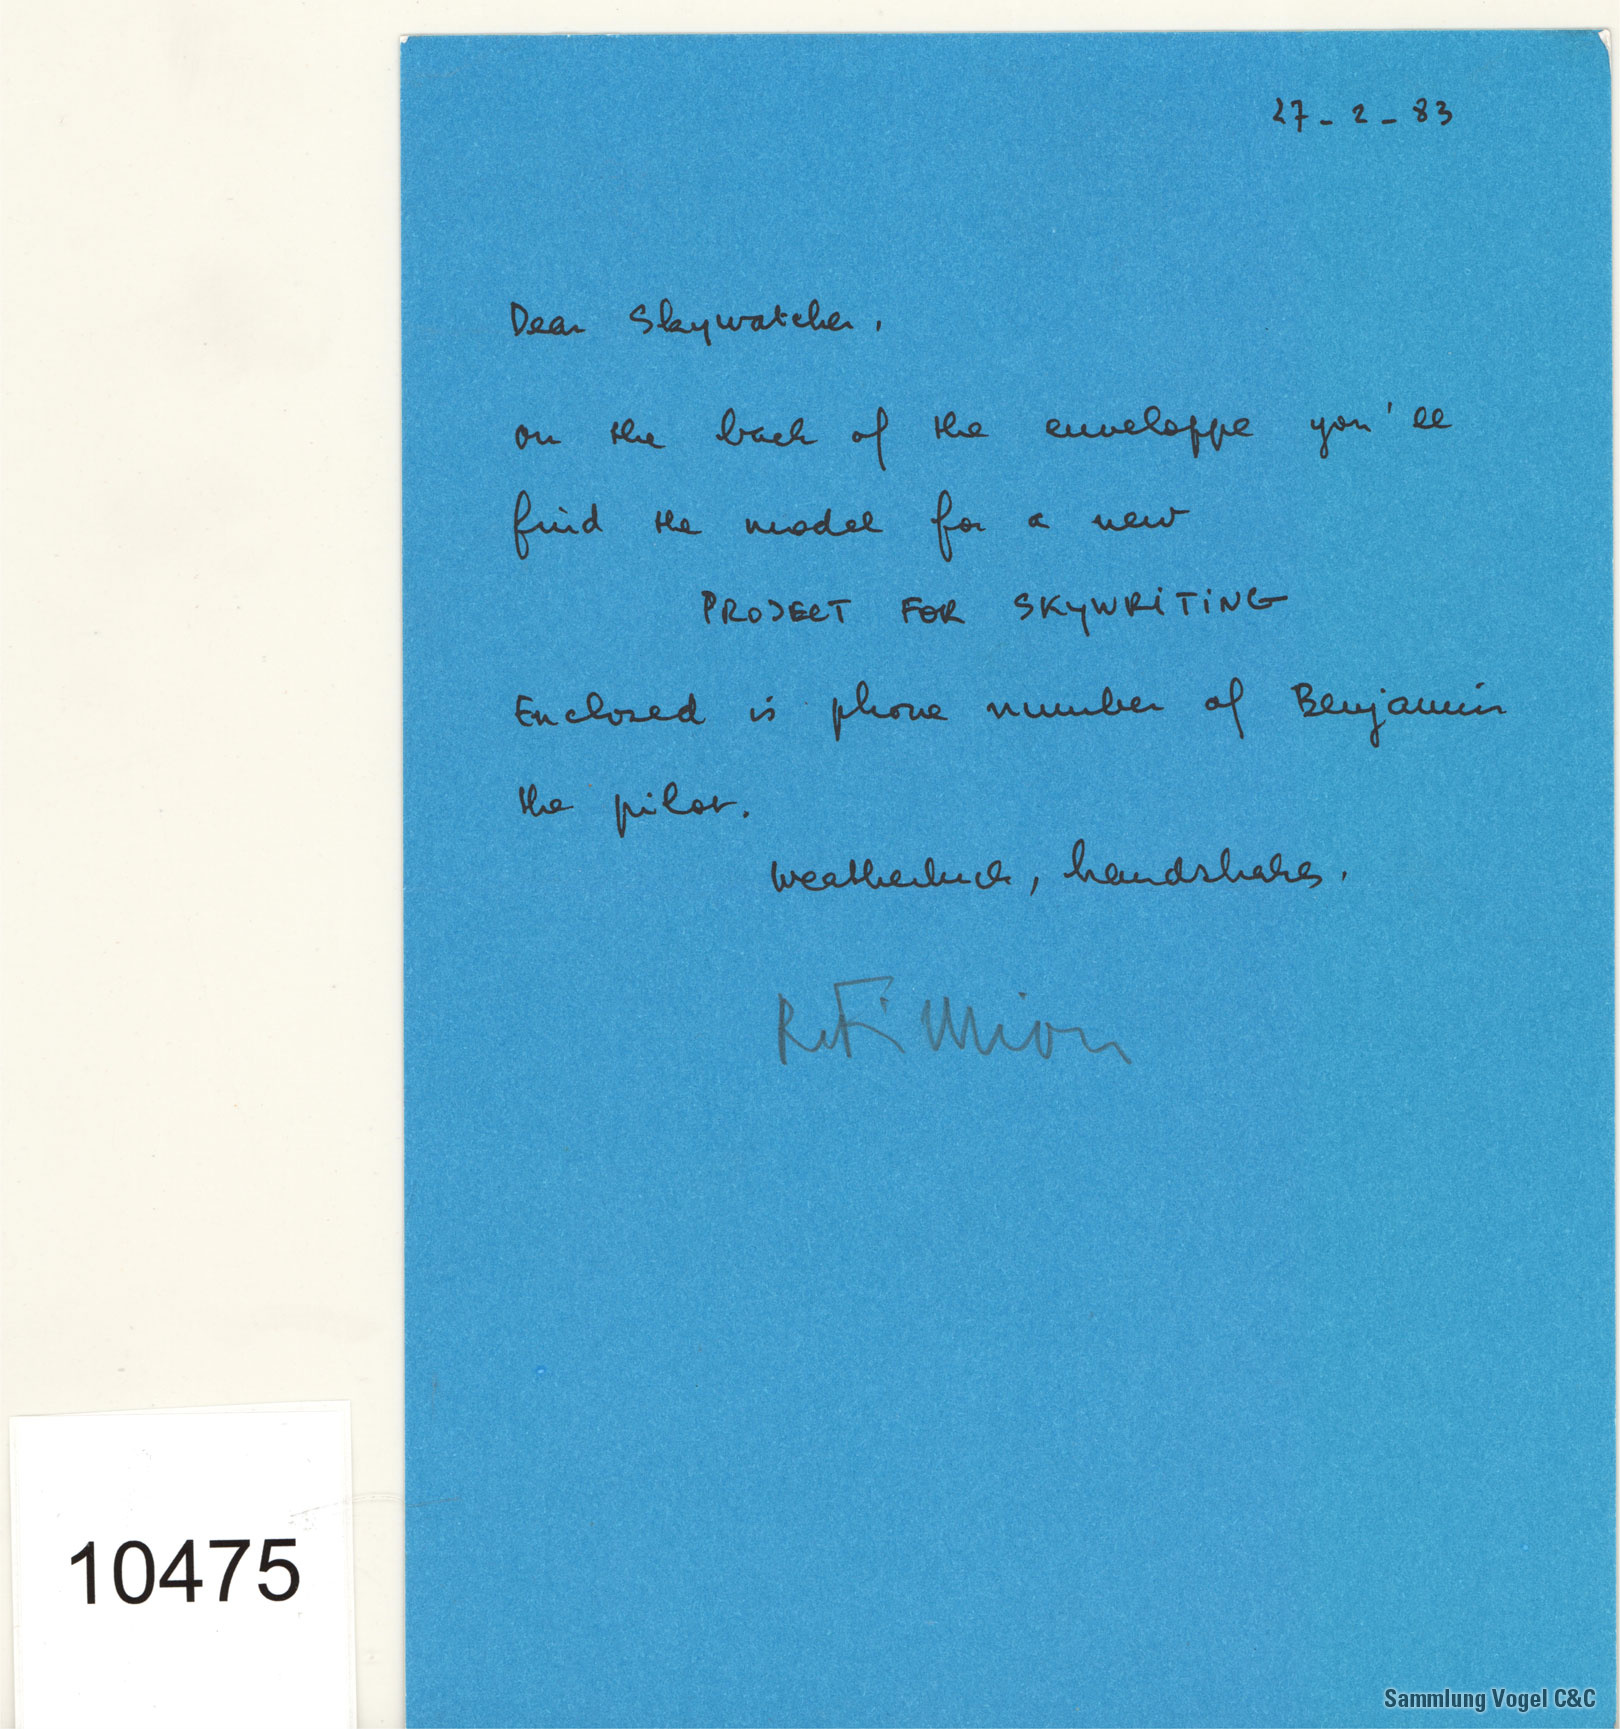 27-2-83
Dear Skywatcher,
on the back of the enveloppe you'll
find the model for a new
PROJECT FOR SKYWRITING
Enclosed is phone number of Benjamin
the pilot.
Weatherluck, handshakes,
10475
Sammlung Vogel C&C